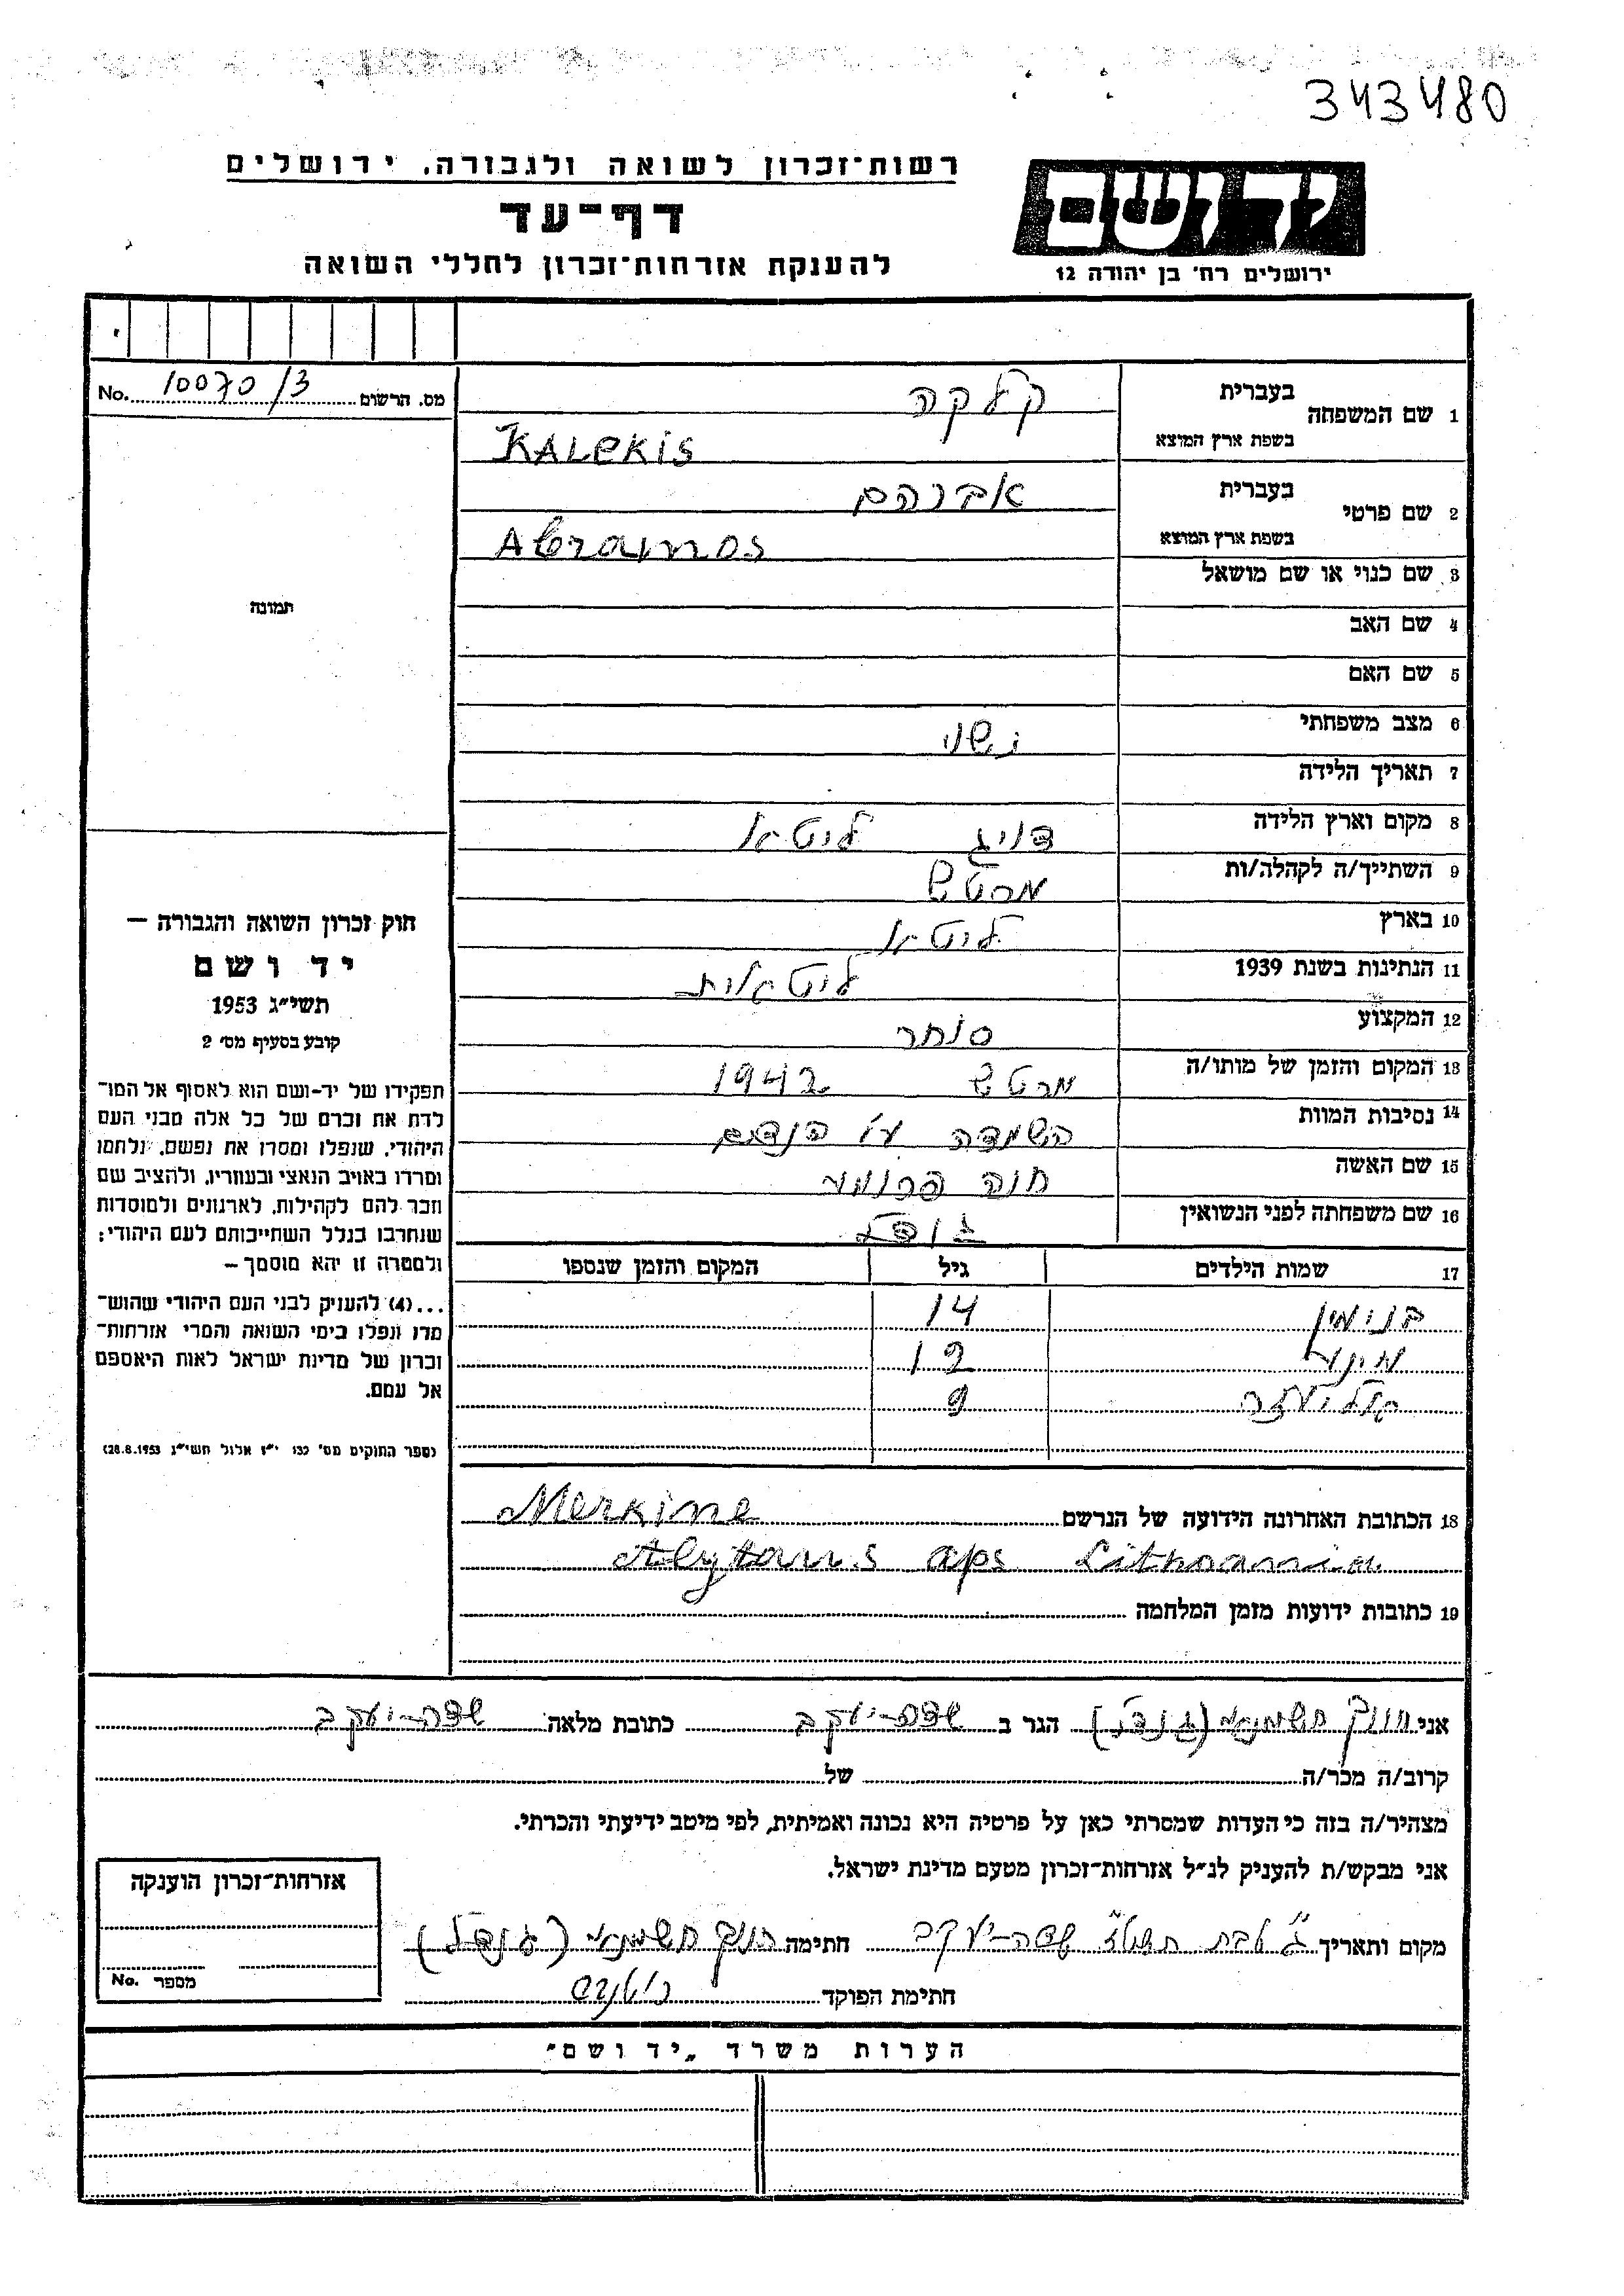 343480
רשות־זכרון לשואה ולגבורה, ירושלים
דף־עד
להענקת אזרחות־זכרון לחללי השואה
יד ושם
ירושלים רח׳ בן יהודה 12
מס. הרשום 10070/3 No.
תמונה
חוק זכרון השואה והגבורה –
יד ושם
תשי״ג 1953
קובע בסעיף מס׳ 2
תפקידו של יד־ושם הוא לאסוף אל המו־
לדת את זכרם של כל אלה מבני העם
היהודי, שנפלו ומסרו את נפשם, נלחמו
ומרדו באויב הנאצי ובעוזריו, ולהציב שם
וזכר להם לקהילות, לארגונים ולמוסדות
שנחרבו בגלל השתייכותם לעם היהודי;
ולמטרה זו יהא מוסמך –
...(4) להעניק לבני העם היהודי שהוש־
מדו ונפלו בימי השואה והמרי אזרחות־
זכרון של מדינת ישראל לאות היאספם
אל עמם.
(ספר החוקים מס׳ 132 י״ז אלול תשי״ג 28.8.1953)
1 שם המשפחה בעברית קלקה
בשפת ארץ המוצא KALEKIS
2 שם פרטי בעברית אברהם
בשפת ארץ המוצא Abramos
3 שם כנוי או שם מושאל
4 שם האב
5 שם האם
6 מצב משפחתי נשוי
7 תאריך הלידה
8 מקום וארץ הלידה דויג ליטא
9 השתייך/ה לקהלה/ות מרטש
10 בארץ ליטא
11 הנתינות בשנת 1939 ליטאית
12 המקצוע סוחר
13 המקום והזמן של מותו/ה מרטש 1942
14 נסיבות המוות השמדה ע״י
15 שם האשה חנה פרומע
16 שם משפחתה לפני הנשואין
17 שמות הילדים גיל המקום והזמן שנספו
בנימין 14
12
אליעזר 9
18 הכתובת האחרונה הידועה של הנרשם Merkine
Alytaus aps Lithoania
19 כתובות ידועות מזמן המלחמה
אני חנוך חשמונאי (גודל) הגר ב שדה־יעקב כתובת מלאה שדה־יעקב
קרוב/ה מכר/ה של
מצהיר/ה בזה כי העדות שמסרתי כאן על פרטיה היא נכונה ואמיתית, לפי מיטב ידיעתי והכרתי.
אני מבקש/ת להעניק לנ״ל אזרחות־זכרון מטעם מדינת ישראל.
מקום ותאריך ג׳ טבת תשט״ז שדה־יעקב חתימה חנוך חשמונאי (גודל)
חתימת הפוקד
אזרחות־זכרון הוענקה
מספר No.
הערות משרד „יד ושם״